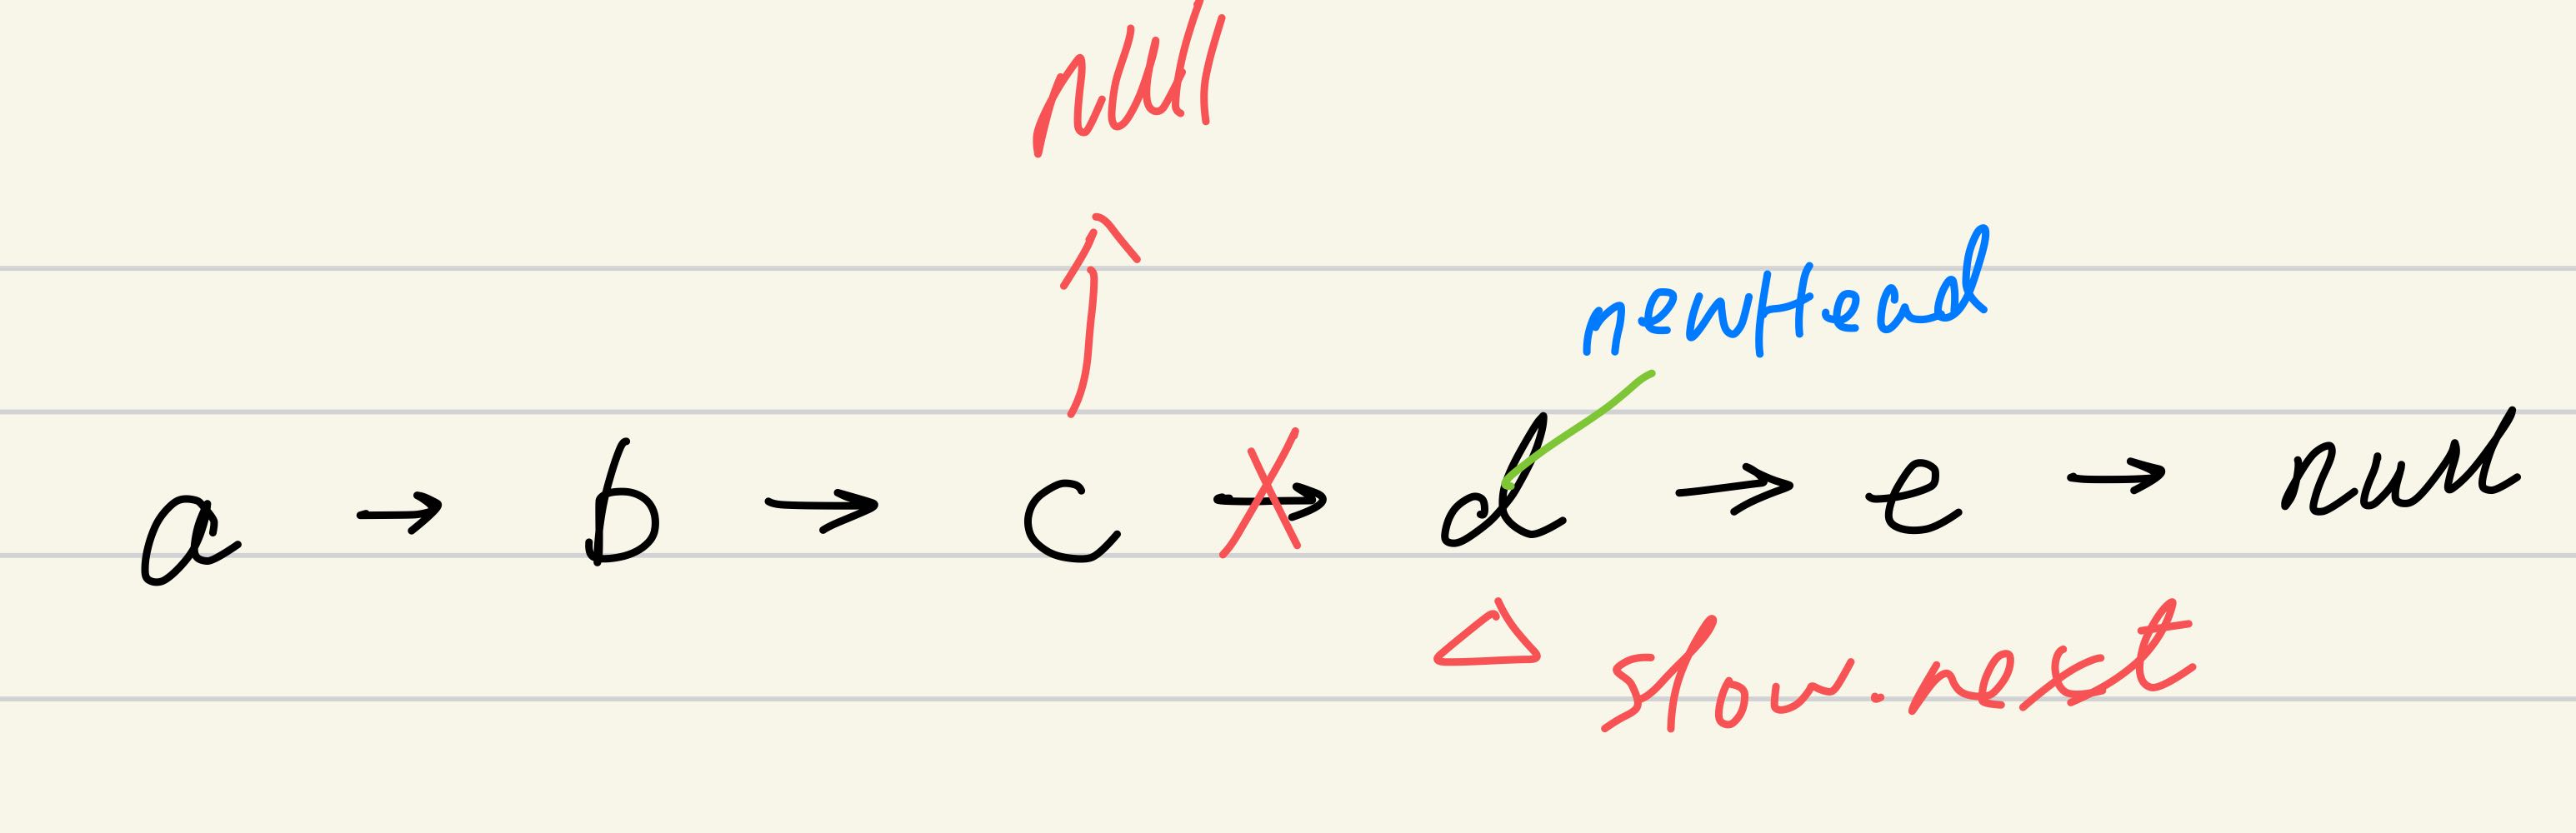 null
newHead
a → b → c → d → e → null
slow.next